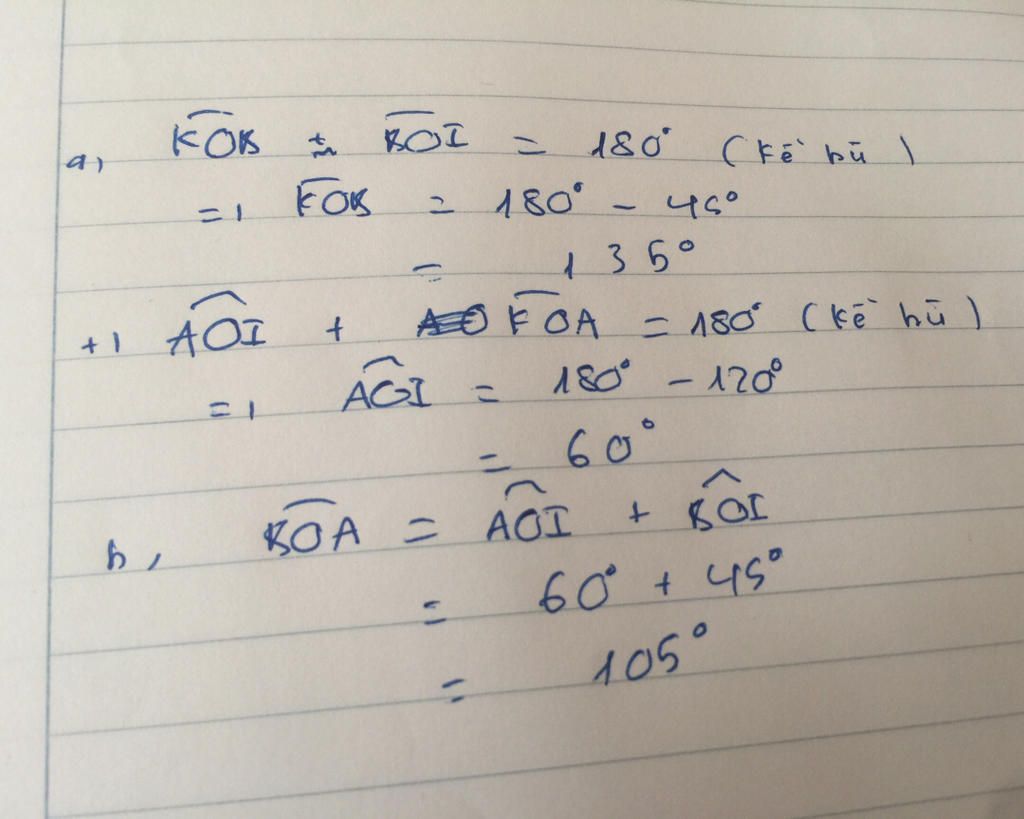 a, KOB + BOI = 180° (kề bù)
=> KOB = 180° - 45°
= 135°
+) AOI + KOA = 180° (kề bù)
=> AOI = 180° - 120°
= 60°
b, BOA = AOI + BOI
= 60° + 45°
= 105°